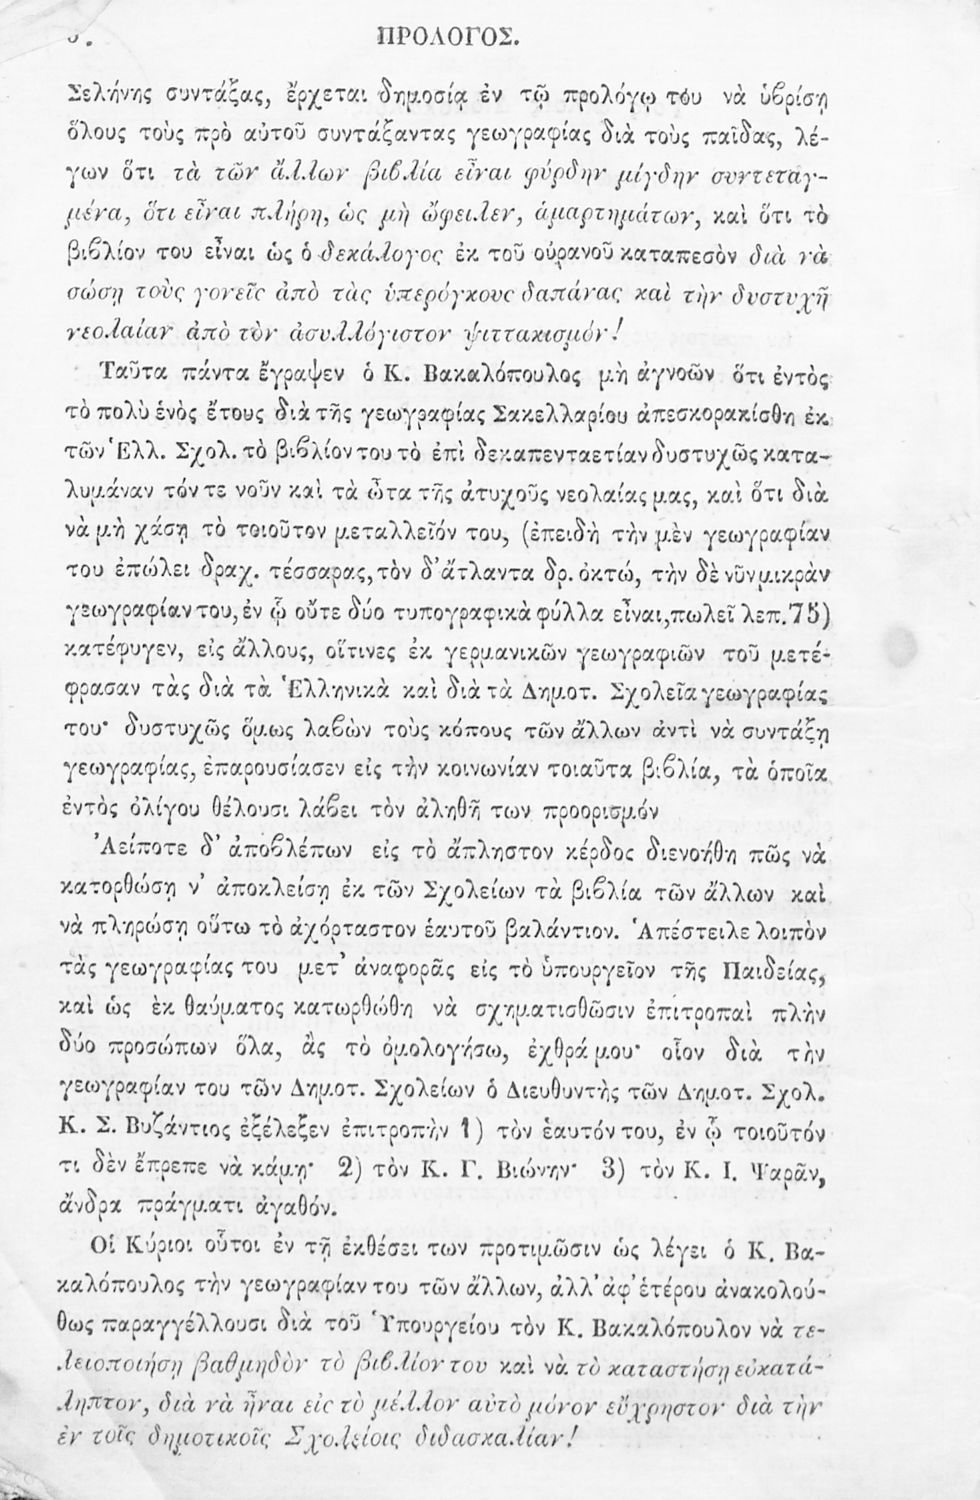 ΠΡΟΛΟΓΟΣ.
Σελήνης συντάξας, ἔρχεται δημοσίᾳ ἐν τῷ προλόγῳ του νὰ ὑβρίσῃ
ὅλους τοὺς πρὸ αὐτοῦ συντάξαντας γεωγραφίας διὰ τοὺς παῖδας, λέ-
γων ὅτι τὰ τῶν ἄλλων βιβλία εἶναι φύρδην μίγδην συντεταγ-
μένα, ὅτι εἶναι πλήρη, ὡς μὴ ὤφειλεν, ἁμαρτημάτων, καὶ ὅτι τὸ
βιβλίον του εἶναι ὡς ὁ δεκάλογος ἐκ τοῦ οὐρανοῦ καταπεσὸν διὰ νὰ
σώσῃ τοὺς γονεῖς ἀπὸ τὰς ὑπερόγκους δαπάνας καὶ τὴν δυστυχῆ
νεολαίαν ἀπὸ τὸν ἀσυλλόγιστον ψιττακισμόν!
Ταῦτα πάντα ἔγραψεν ὁ Κ. Βακαλόπουλος μὴ ἀγνοῶν ὅτι ἐντὸς
τὸ πολὺ ἑνὸς ἔτους διὰ τῆς γεωγραφίας Σακελλαρίου ἀπεσκορακίσθη ἐκ
τῶν Ἑλλ. Σχολ. τὸ βιβλίον του τὸ ἐπὶ δεκαπενταετίαν δυστυχῶς κατα-
λυμάναν τόν τε νοῦν καὶ τὰ ὦτα τῆς ἀτυχοῦς νεολαίας μας, καὶ ὅτι διὰ
νὰ μὴ χάσῃ τὸ τοιοῦτον μεταλλεῖόν του, (ἐπειδὴ τὴν μὲν γεωγραφίαν
του ἐπώλει δραχ. τέσσαρας, τὸν δ' ἄτλαντα δρ. ὀκτώ, τὴν δὲ νῦν μικρὰν
γεωγραφίαν του, ἐν ᾧ οὔτε δύο τυπογραφικὰ φύλλα εἶναι, πωλεῖ λεπ. 75)
κατέφυγεν, εἰς ἄλλους, οἵτινες ἐκ γερμανικῶν γεωγραφιῶν τοῦ μετέ-
φρασαν τὰς διὰ τὰ Ἑλληνικὰ καὶ διὰ τὰ Δημοτ. Σχολεῖα γεωγραφίας
του· δυστυχῶς ὅμως λαβὼν τοὺς κόπους τῶν ἄλλων ἀντὶ νὰ συντάξῃ
γεωγραφίας, ἐπαρουσίασεν εἰς τὴν κοινωνίαν τοιαῦτα βιβλία, τὰ ὁποῖα
ἐντὸς ὀλίγου θέλουσι λάβει τὸν ἀληθῆ των προορισμόν
Ἀείποτε δ' ἀποβλέπων εἰς τὸ ἄπληστον κέρδος διενοήθη πῶς νὰ
κατορθώσῃ ν' ἀποκλείσῃ ἐκ τῶν Σχολείων τὰ βιβλία τῶν ἄλλων καὶ
νὰ πληρώσῃ οὕτω τὸ ἀχόρταστον ἑαυτοῦ βαλάντιον. Ἀπέστειλε λοιπὸν
τὰς γεωγραφίας του μετ' ἀναφορᾶς εἰς τὸ ὑπουργεῖον τῆς Παιδείας,
καὶ ὡς ἐκ θαύματος κατωρθώθη νὰ σχηματισθῶσιν ἐπιτροπαὶ πλὴν
δύο προσώπων ὅλα, ἂς τὸ ὁμολογήσω, ἐχθρά μου· οἷον διὰ τὴν
γεωγραφίαν του τῶν Δημοτ. Σχολείων ὁ Διευθυντὴς τῶν Δημοτ. Σχολ.
Κ. Σ. Βυζάντιος ἐξέλεξεν ἐπιτροπὴν 1) τὸν ἑαυτόν του, ἐν ᾧ τοιοῦτόν
τι δὲν ἔπρεπε νὰ κάμῃ· 2) τὸν Κ. Γ. Βιώνην· 3) τὸν Κ. Ι. Ψαρᾶν,
ἄνδρα πράγματι ἀγαθόν.
Οἱ Κύριοι οὗτοι ἐν τῇ ἐκθέσει των προτιμῶσιν ὡς λέγει ὁ Κ. Βα-
καλόπουλος τὴν γεωγραφίαν του τῶν ἄλλων, ἀλλ' ἀφ' ἑτέρου ἀνακολού-
θως παραγγέλλουσι διὰ τοῦ Ὑπουργείου τὸν Κ. Βακαλόπουλον νὰ τε-
λειοποιήσῃ βαθμηδὸν τὸ βιβλίον του καὶ νὰ τὸ καταστήσῃ εὐκατά-
ληπτον, διὰ νὰ ἦναι εἰς τὸ μέλλον αὐτὸ μόνον εὔχρηστον διὰ τὴν
ἐν τοῖς δημοτικοῖς Σχολείοις διδασκαλίαν!